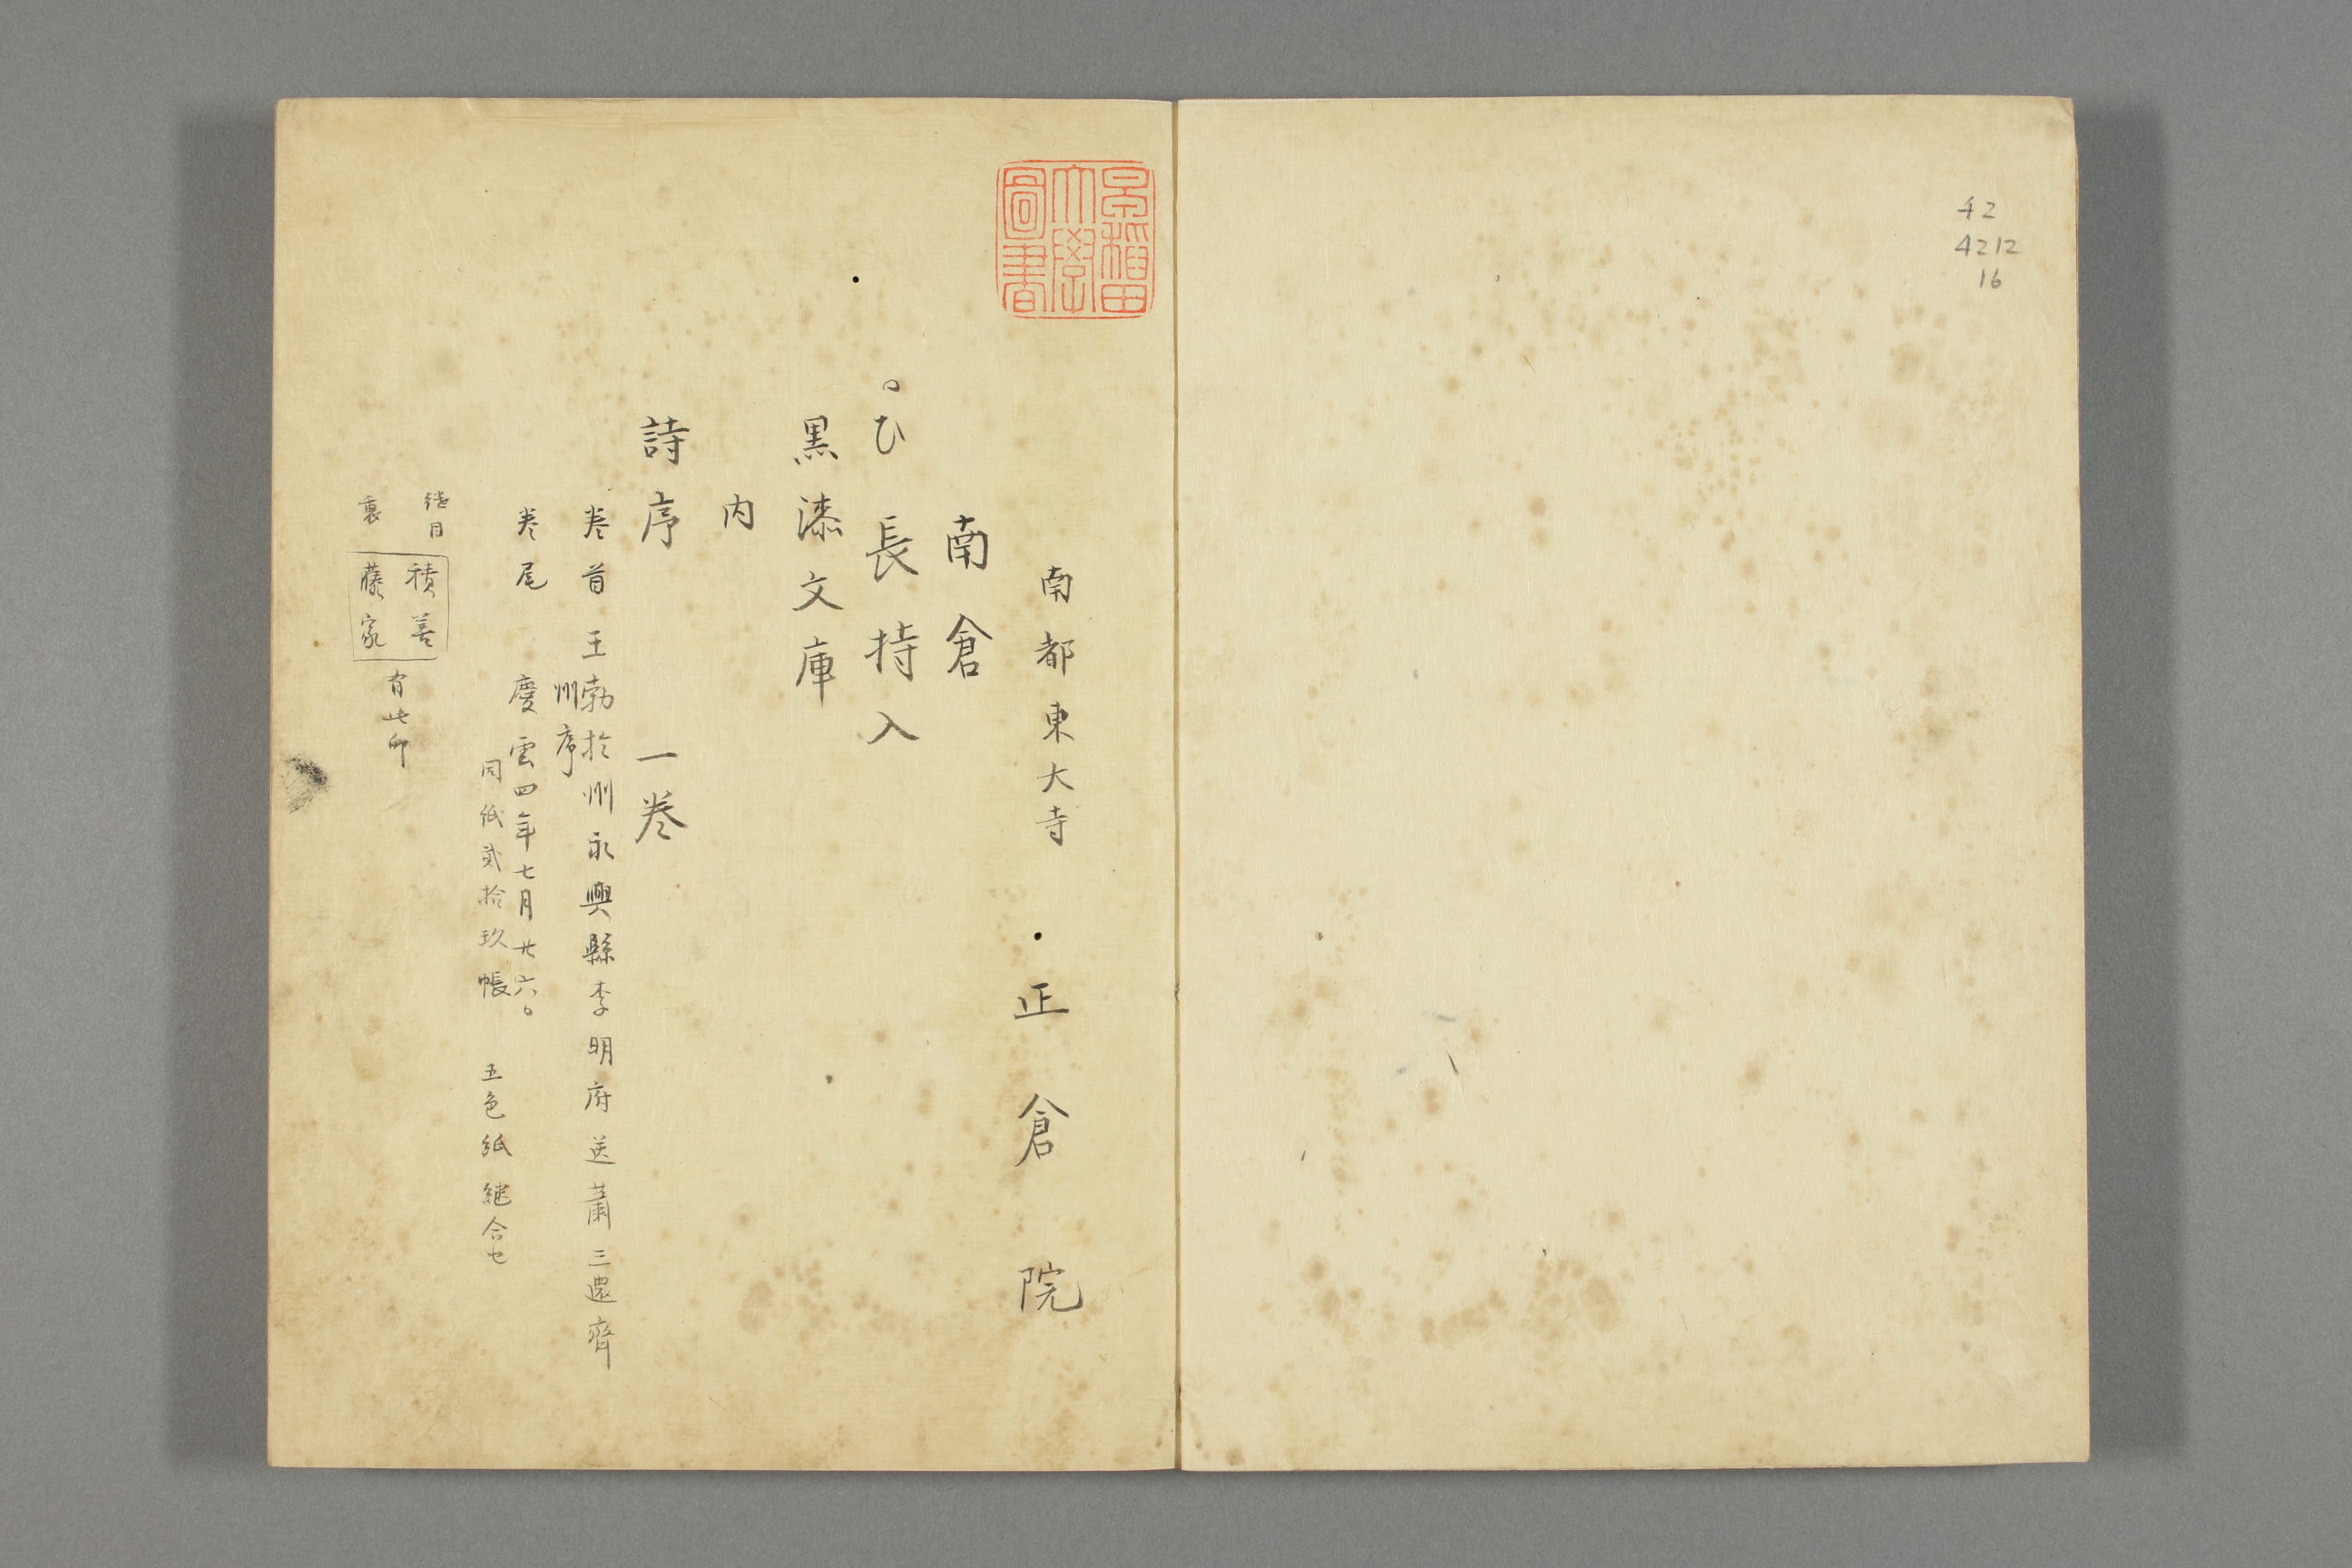 42
4212
16
早稲田
大學
圖書
南都東大寺 正倉院
南倉
ひ長持入
黒漆文庫
内
詩序 一巻
巻首 王勃於州永興縣李明府送蕭三還齊
州序
巻尾 慶雲四年七月廿六日
同紙貳拾玖帳 五色紙継合也
継目
裏
積善
藤家
有此印